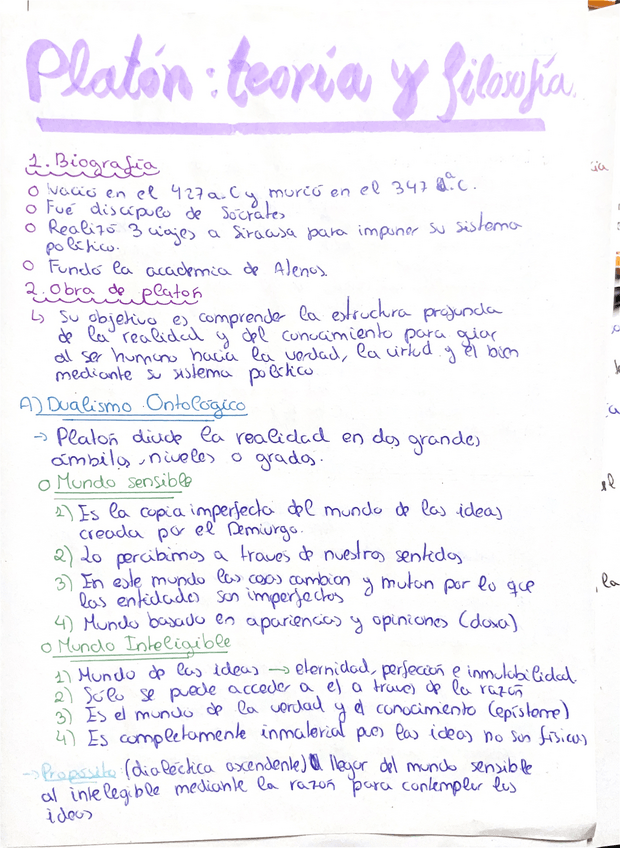 Platón: teoría y filosofía.
1. Biografía
O Nació en el 427 a.C y murió en el 347 a.C.
O Fué discípulo de Sócrates
O Realizó 3 viajes a Siracusa para imponer su sistema
político.
O Fundó la academia de Atenas
2. Obra de platón
↳ Su objetivo es comprender la estructura profunda
de la realidad y del conocimiento para guiar
al ser humano hacia la verdad, la virtud y el bien
mediante su sistema político
A) Dualismo Ontológico
→ Platón divide la realidad en dos grandes
ámbitos, niveles o grados.
O Mundo sensible
1) Es la copia imperfecta del mundo de las ideas
creada por el Demiurgo.
2) Lo percibimos a traves de nuestros sentidos
3) En este mundo las cosas cambian y mutan por lo que
las entidades son imperfectas
4) Mundo basado en apariencias y opiniones (doxa)
O Mundo Inteligible
1) Mundo de las ideas → eternidad, perfección e inmutabilidad
2) Solo se puede acceder a el a traves de la razón
3) Es el mundo de la verdad y el conocimiento (epísteme)
4) Es completamente inmaterial pues las ideas no son físicas
→ Propósito (dialéctica ascendente) llegar del mundo sensible
al intelegible mediante la razón para contemplar las
ideas
cia
el
la